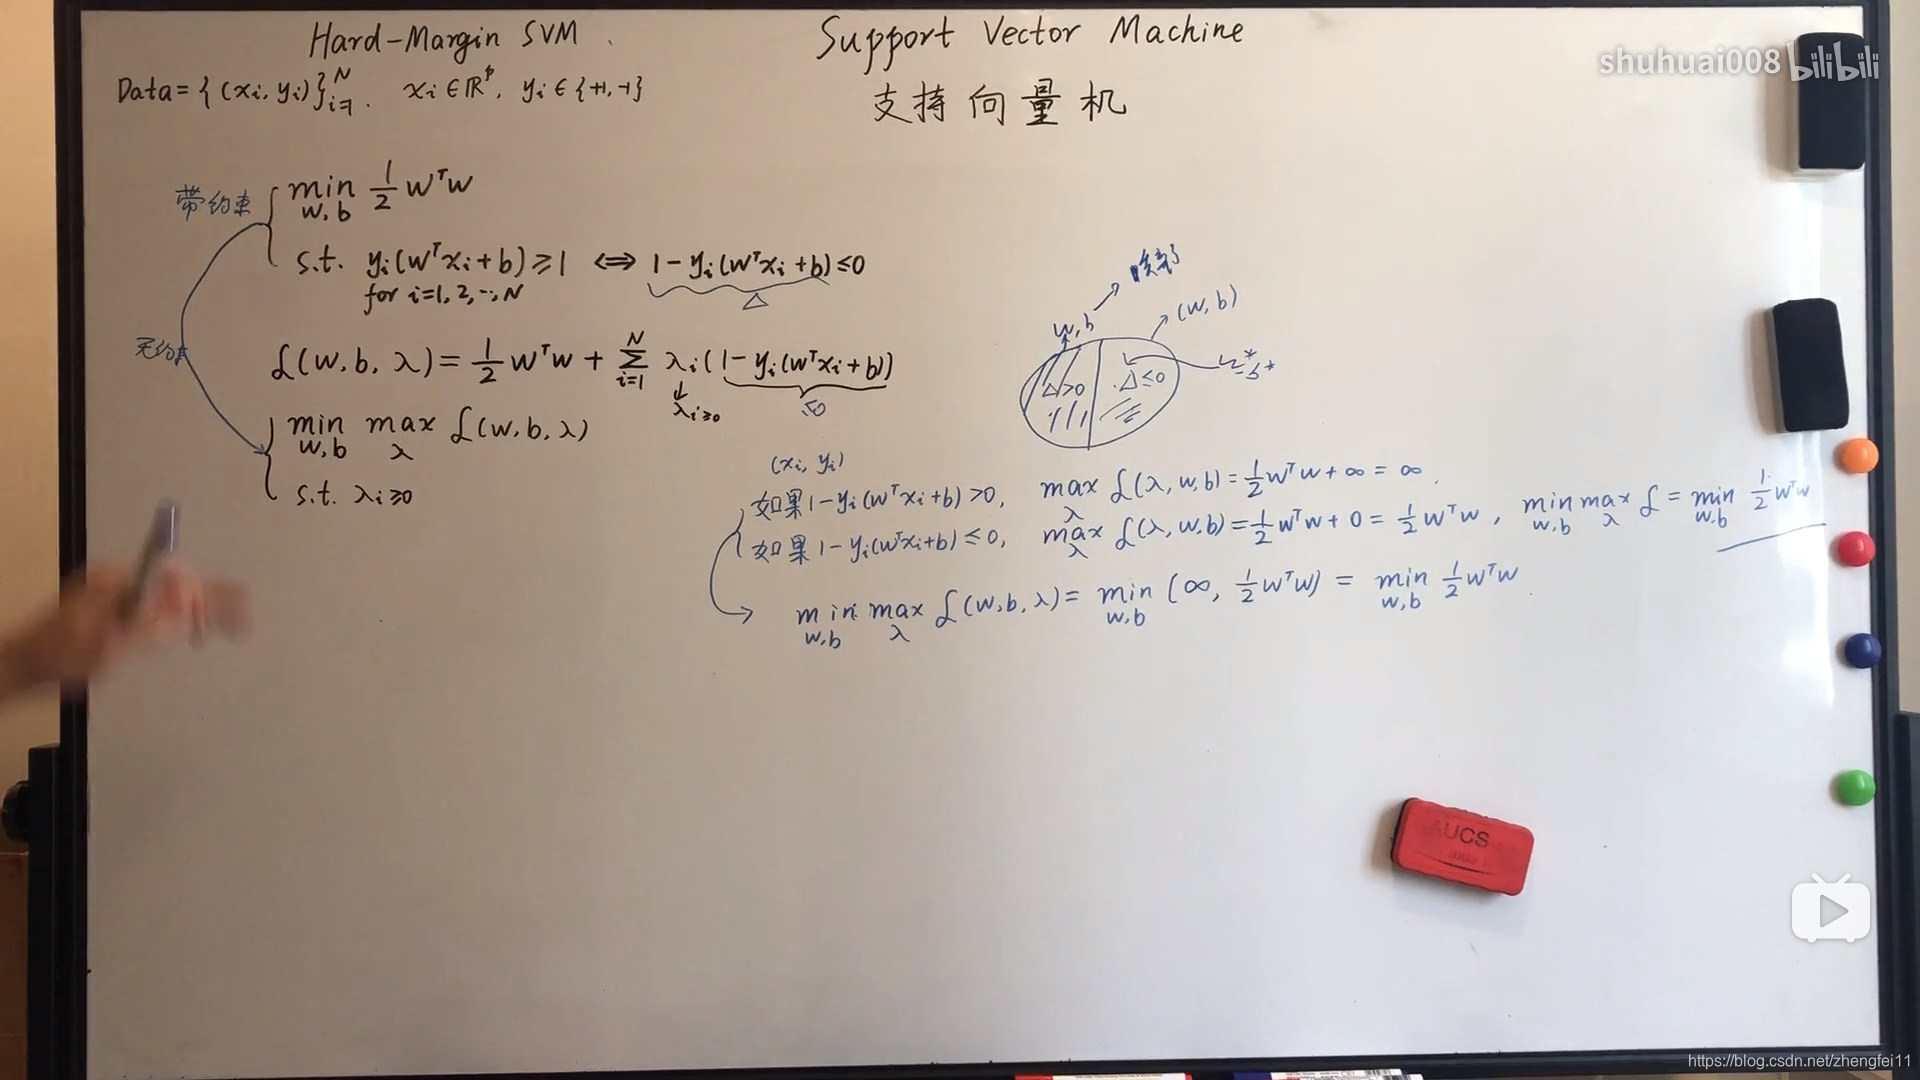 Hard-Margin SVM
Support Vector Machine
支持向量机
shuhuai008 bilibili
Data = {(xᵢ, yᵢ)}ᵢ₌₁ᴺ. xᵢ ∈ ℝᵖ, yᵢ ∈ {+1, -1}
带约束
min 1/2 wᵀw
w, b
s.t. yᵢ(wᵀxᵢ+b) ≥ 1 ⟺ 1-yᵢ(wᵀxᵢ+b) ≤ 0
for i=1, 2, ..., N
△
无约束
ℒ(w, b, λ) = 1/2 wᵀw + Σᵢ₌₁ᴺ λᵢ(1-yᵢ(wᵀxᵢ+b))
λᵢ≥0
≤0
min max ℒ(w, b, λ)
w,b λ
s.t. λᵢ ≥ 0
w,b
(w, b)
△>0
△≤0
(xᵢ, yᵢ)
如果 1-yᵢ(wᵀxᵢ+b) > 0, max ℒ(λ, w, b) = 1/2 wᵀw + ∞ = ∞.
λ
如果 1-yᵢ(wᵀxᵢ+b) ≤ 0, max ℒ(λ, w, b) = 1/2 wᵀw + 0 = 1/2 wᵀw, min max ℒ = min 1/2 wᵀw
λ w,b λ w,b
min max ℒ(w, b, λ) = min (∞, 1/2 wᵀw) = min 1/2 wᵀw
w,b λ w,b w,b
AUCS
https://blog.csdn.net/zhengfei11